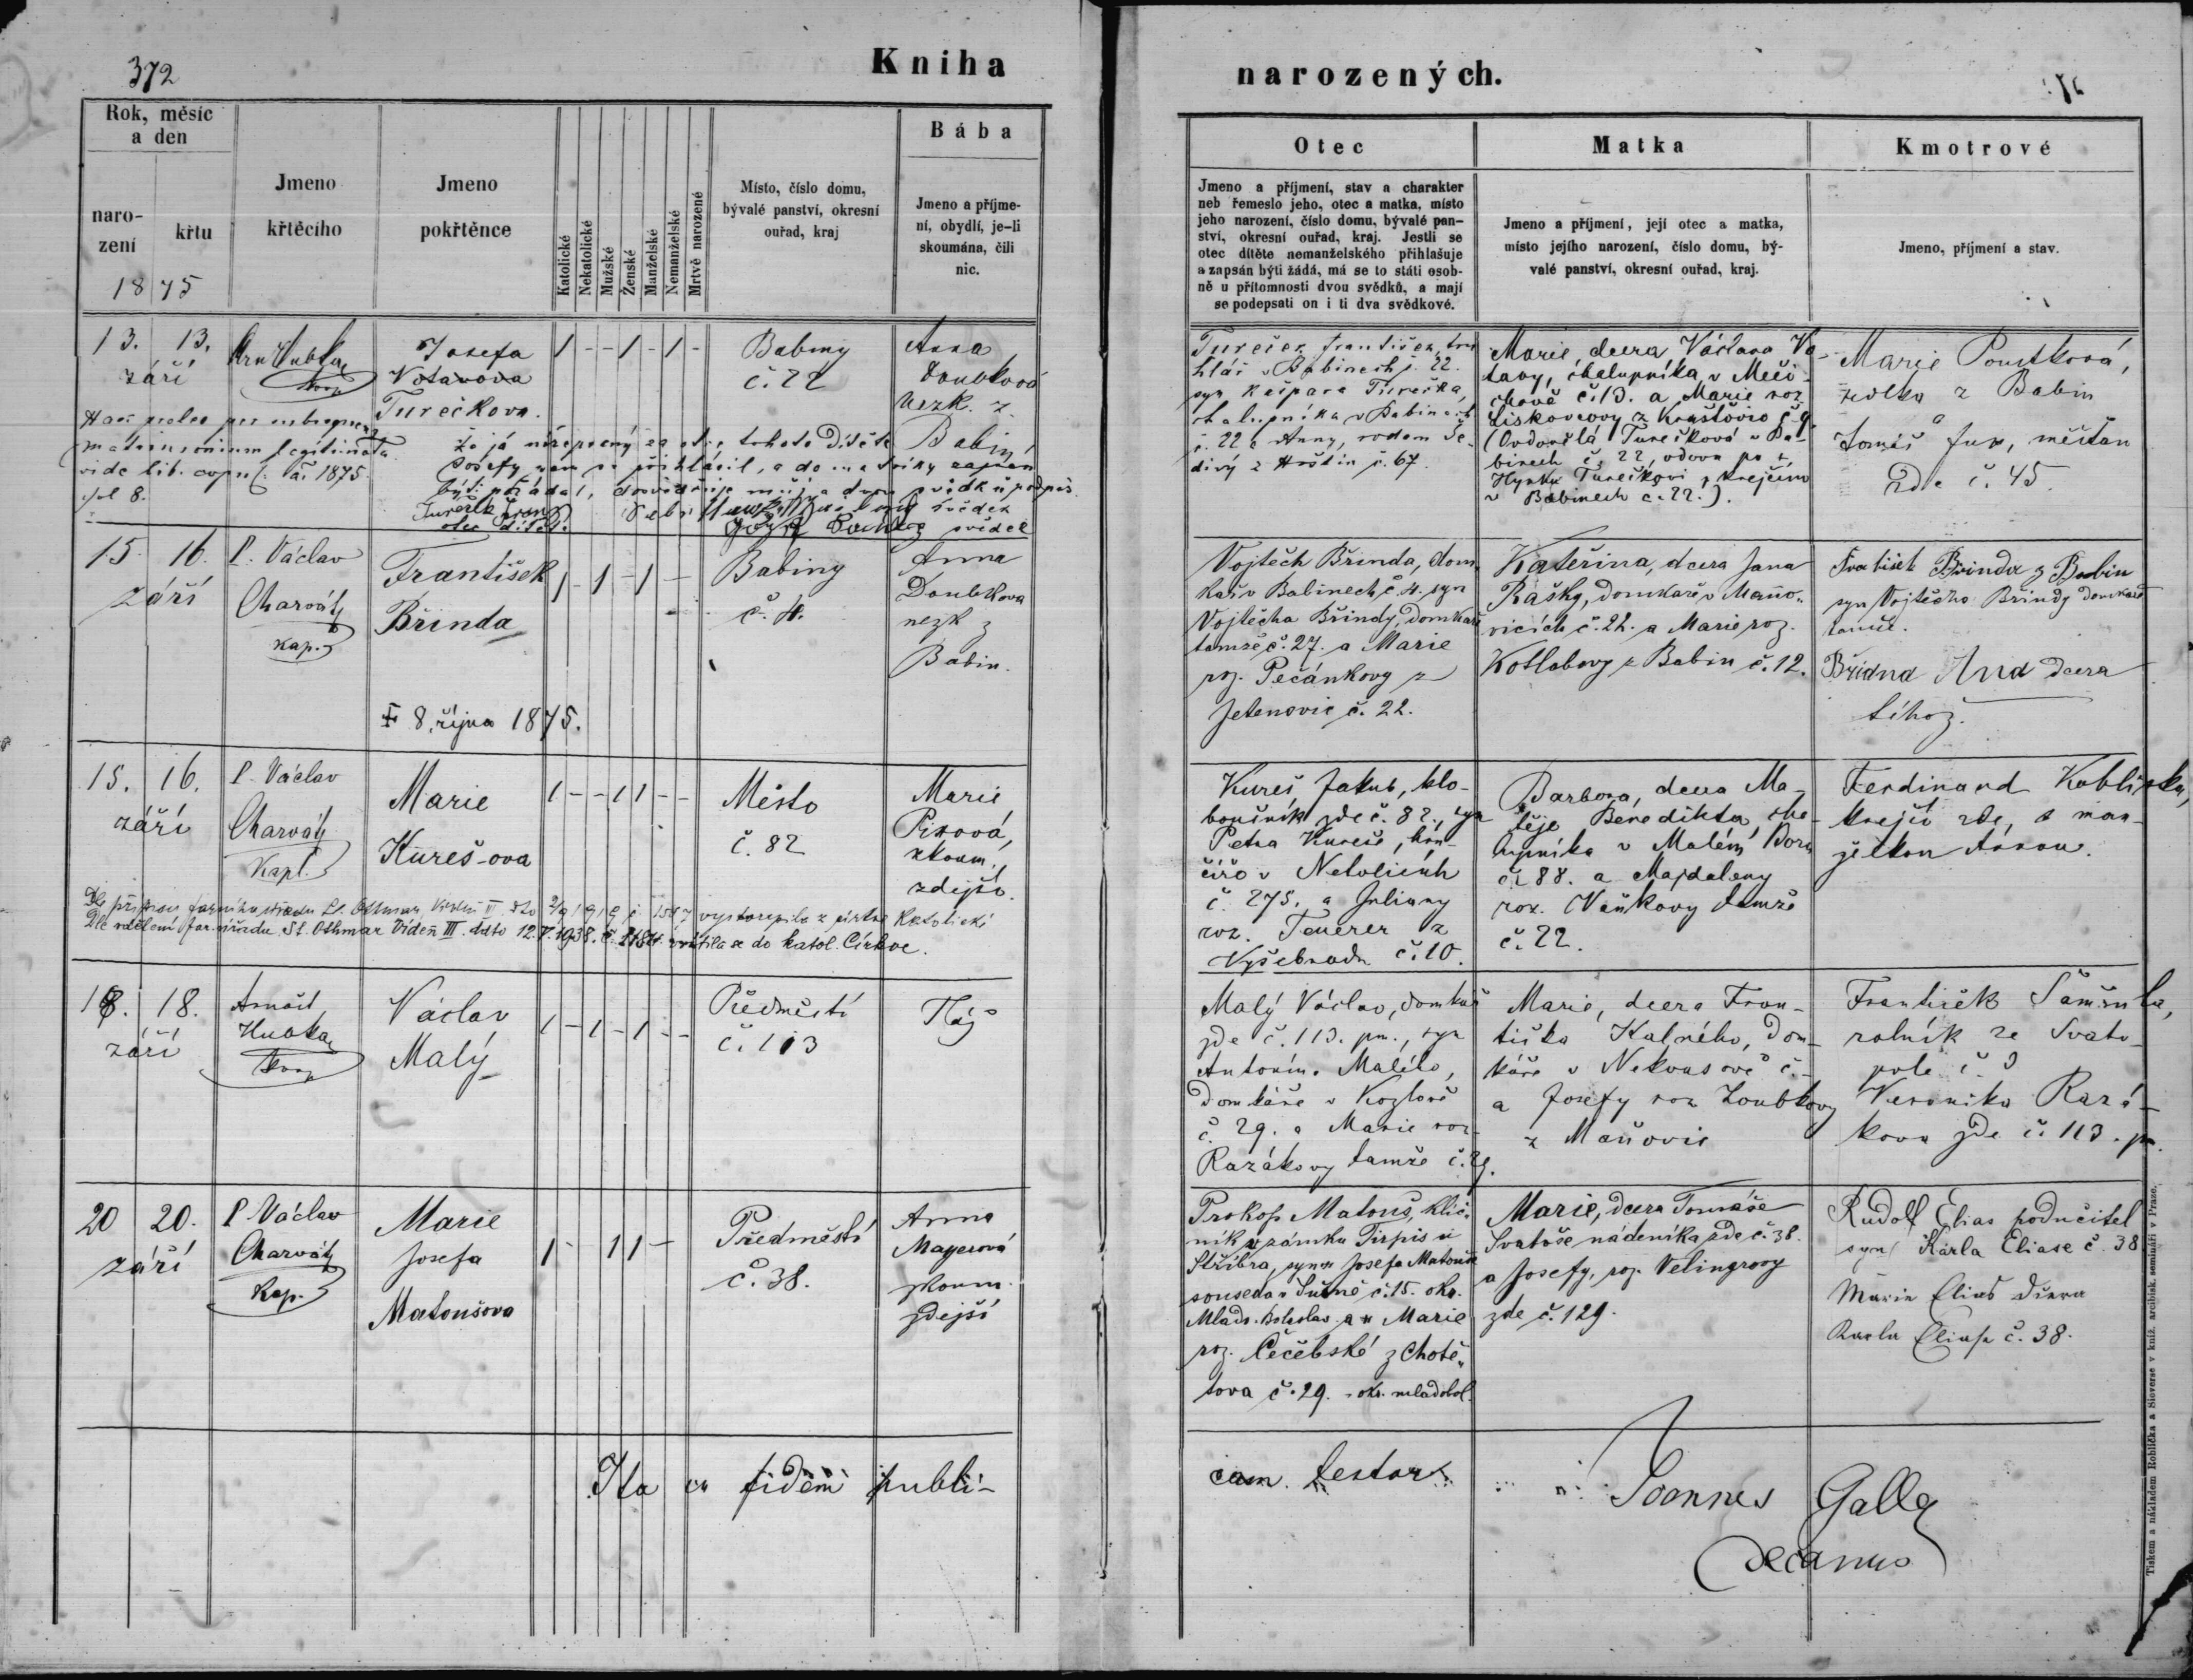 372
Kniha
narozených.
Rok, měsíc
a den
naro-
zení
křtu
1875
Jmeno
křtěcího
Jmeno
pokřtěnce
Katolické
Nekatolické
Mužské
Ženské
Manželské
Nemanželské
Mrtvě narozené
Místo, číslo domu,
bývalé panství, okresní
ouřad, kraj
Bába
Jmeno a příjme-
ní, obydlí, je-li
skoumána, čili
nic.
Otec
Jmeno a příjmení, stav a charakter
neb řemeslo jeho, otec a matka, místo
jeho narození, číslo domu, bývalé pan-
ství, okresní ouřad, kraj. Jestli se
otec dítěte nemanželského přihlašuje
a zapsán býti žádá, má se to státi osob-
ně u přítomnosti dvou svědků, a mají
se podepsati on i ti dva svědkové.
Matka
Jmeno a příjmení, její otec a matka,
místo jejího narození, číslo domu, bý-
valé panství, okresní ouřad, kraj.
Kmotrové
Jmeno, příjmení a stav.
13. 13.
září
Josefa
Votavova
Turečkova.
1 - - 1 - 1 -
Babiny
č. 22
Anna
Doubková
nezk. z
Babin
Haec proles per subsequens
matrimonium legitimata
vide lib. copul. 1875
fol 8.
že já níže psaný za otce tohoto dítěte
Josefy sem se přihlásil, a do matriky zapsán
býti požádal, dosvědčuje můj a dvou svědků podpis
otec dítěte.
svědek
svědek
Tureček František, tru
hlář v Babinech č. 22.
syn Kašpara Turečka,
chalupníka v Babinech
č. 22 a Anny, rodem Še-
divý z Hoštin č. 67.
Marie, dcera Václava Vo-
tavy, chalupníka v Meči-
chově č. 13. a Marie roz.
Liskovcovy z Kraštovic č. 9
(Ovdovělá Turečková v Ba-
binech č. 22, vdova po
Hynku Turečkovi, krejčím
v Babinech č. 22.).
Marie Poustková,
rolka z Babin
a
Tomáš Fux, měšťan
zde č. 45.
15. 16.
září
P. Václav
Charvát
kap.
František
Břinda
1 - 1 - 1 -
Babiny
č. 4.
Anna
Doubkova
nezk z
Babin.
Vojtěch Břinda, dom-
kař v Babinech č. 4. syn
Vojtěcha Břindy, domkaře
tamže č. 27. a Marie
roz. Pečánkovy z
Jetenovic č. 22.
Kateřina, dcera Jana
Rašky, domkaře v Maňo-
vicích č. 22. a Marie roz.
Kotlabovy z Babin č. 12.
František Břinda z Babin
syn Vojtěcha Břindy domkaře
tamže.
Břidna Ana dcera
téhož.
† 8. října 1875.
15. 16.
září
P. Václav
Charvát
Kapl.
Marie
Kureš-ova
1 - - 1 1 - -
Město
č. 82
Marie
Pixová,
zkoum.,
zdejší.
Kureš Jakub, klo-
boučník zde č. 82., syn
Petra Kureše, hrn-
číře v Netolicích
č. 275. a Juliany
roz. Teuerer z
Vyšebrodu č. 10.
Barbora, dcera Ma-
těje Benedikta, cha-
lupníka v Malém Boru
č. 88. a Majdaleny
roz. Vaňkovy tamže
č. 22.
Ferdinand Koblížka,
krejčí zde, s man-
želkou Annou.
Dle přípisu farního úřadu St. Othmar, Vídeň III. dto vystoupila z církve Katolické
Dle sdělení far. úřadu St. Othmar Vídeň III. ddto 12. V. 1938. č. 2184 vrátila se do katol. Církve.
18. 18.
září
Arnošt
Hubka
Václav
Malý
1 - 1 - 1 - -
Předměstí
č. 113
Táž
Malý Václav, domkář
zde č. 113. pm., syn
Antonína Malého,
domkáře v Kozlově
č. 29. a Marie roz.
Razákovy tamže č. 29.
Marie, dcera Fran-
tiška Kalného, dom-
káře v Nekvasově č. -
a Josefy roz. Zoubkovy
z Maňovic
František Samšula,
rolník ze Svato-
pole č. 9
Veronika Razá-
kova zde č. 113. pm.
20 20.
září
P. Václav
Charvát
Kap.
Marie
Josefa
Matoušova
1 - 1 1 -
Předměstí
č. 38.
Anna
Mayerová
zkoum.
zdejší
Prokop Matouš, klíč-
ník v zámku Tirpis u
Stříbra, syn Josefa Matouše
souseda v Sušně č. 15. okr.
Mlado. Boleslav. a Marie
roz. Čečebské z Chotě-
tova č. 29. okr. mladobol.
Marie, dcera Tomáše
Svatoše nádeníka zde č. 38.
a Josefy, roz. Velingrovy
zde č. 129.
Rudolf Elias podučitel
syn Karla Eliase č. 38.
Marie Elias dcera
Karla Eliase č. 38.
Ita in fidem publi-
cam testor.
Joannes Galla
decanus
Tiskem a nákladem Rohlíčka a Sieversa v kníž. arcibisk. semináři v Praze.